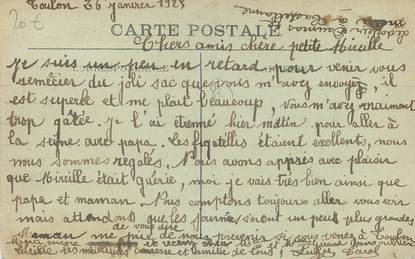 Toulon 26 janvier 1925
20 €
CARTE POSTALE
Chers amis chère petite Mireille
Je suis un peu en retard pour venir vous
remercier du joli sac que vous m'avez envoyé, il
est superbe et me plait beaucoup, vous m'avez vraiment
trop gâtée. je l'ai étrenné hier matin pour aller à
la seine avec papa. Les figatellis étaient excellents, nous
nous sommes régalés. Nous avons appris avec plaisir
que Mireille était guérie, moi je vais très bien ainsi que
papa et maman. Nous comptons toujours aller vous voir
mais attendons que les journées soient un peu plus grandes
de vous dire
Maman me prie de nous prévenir si vous venez à Toulon
Merci encore et recevez cher M. et Mme
Mireille les meilleures caresses et amitié de tous,